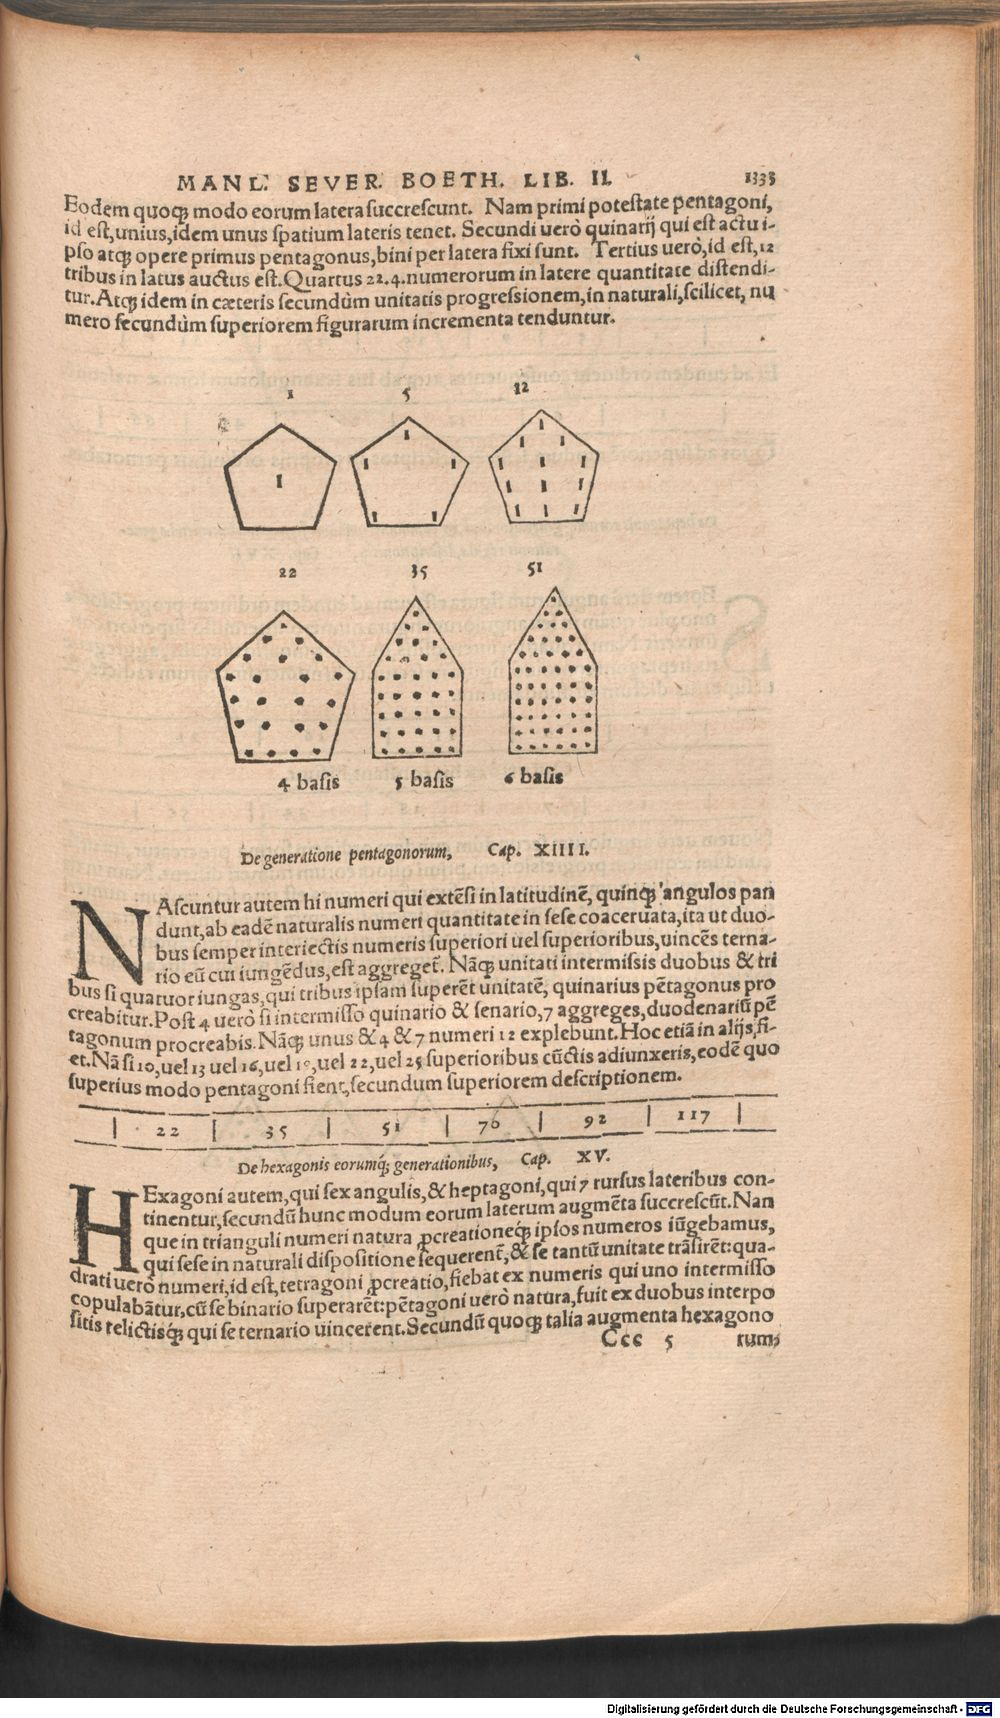 MANL. SEVER. BOETH. LIB. II. 1333
Eodem quoqꝫ modo eorum latera succrescunt. Nam primi potestate pentagoni,
id est, unius, idem unus spatium lateris tenet. Secundi uerò quinarij qui est actu i-
pso atqꝫ opere primus pentagonus, bini per latera fixi sunt. Tertius uerò, id est, 12
tribus in latus auctus est. Quartus 22. 4. numerorum in latere quantitate distendi-
tur. Atqꝫ idem in cæteris secundùm unitatis progressionem, in naturali, scilicet, nu
mero secundùm superiorem figurarum incrementa tenduntur.
1 5 12
22 35 51
4 basis 5 basis 6 basis
De generatione pentagonorum, Cap. XIIII.
NAscuntur autem hi numeri qui extẽsi in latitudinẽ, quinqꝫ angulos pan
dunt, ab eadẽ naturalis numeri quantitate in sese coaceruata, ita ut duo-
bus semper interiectis numeris superiori uel superioribus, uincẽs terna-
rio eũ cui iungẽdus, est aggreget̃. Nãqꝫ unitati intermissis duobus & tri
bus si quatuor iungas, qui tribus ipsam superẽt unitatẽ, quinarius pẽtagonus pro
creabitur. Post 4 uerò si intermisso quinario & senario, 7 aggreges, duodenariũ pẽ
tagonum procreabis. Nãqꝫ unus & 4 & 7 numeri 12 explebunt. Hoc etiã in alijs, fi-
et. Nã si 10, uel 13 uel 16, uel 19, uel 22, uel 25 superioribus cũctis adiunxeris, eodẽ quo
superius modo pentagoni fient, secundum superiorem descriptionem.
| 22 | 35 | 51 | 70 | 92 | 117 |
De hexagonis eorumqꝫ generationibus, Cap. XV.
HExagoni autem, qui sex angulis, & heptagoni, qui 7 rursus lateribus con-
tinentur, secundũ hunc modum eorum laterum augmẽta succrescũt. Nan
que in trianguli numeri natura ꝓcreationeqꝫ ipsos numeros iũgebamus,
qui sese in naturali dispositione sequerent̃, & se tantũ unitate trãsirẽt: qua-
drati uerò numeri, id est, tetragoni ꝓcreatio, fiebat ex numeris qui uno intermisso
copulabãtur, cũ se binario superarẽt: pẽtagoni uerò natura, fuit ex duobus interpo
sitis relictisqꝫ qui se ternario uincerent. Secundũ quoqꝫ talia augmenta hexagono
Ccc 5 rum,
Digitalisierung gefördert durch die Deutsche Forschungsgemeinschaft - DFG